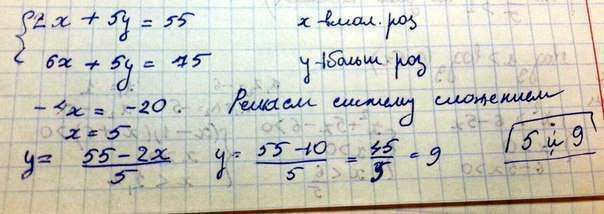 { 2x + 5y = 55 x - в мал. роз
6x + 5y = 75 y - больш роз
-4x = -20 Решаем систему сложением
x = 5
y = (55 - 2x)/5 y = (55 - 10)/5 = 45/5 = 9 5 и 9